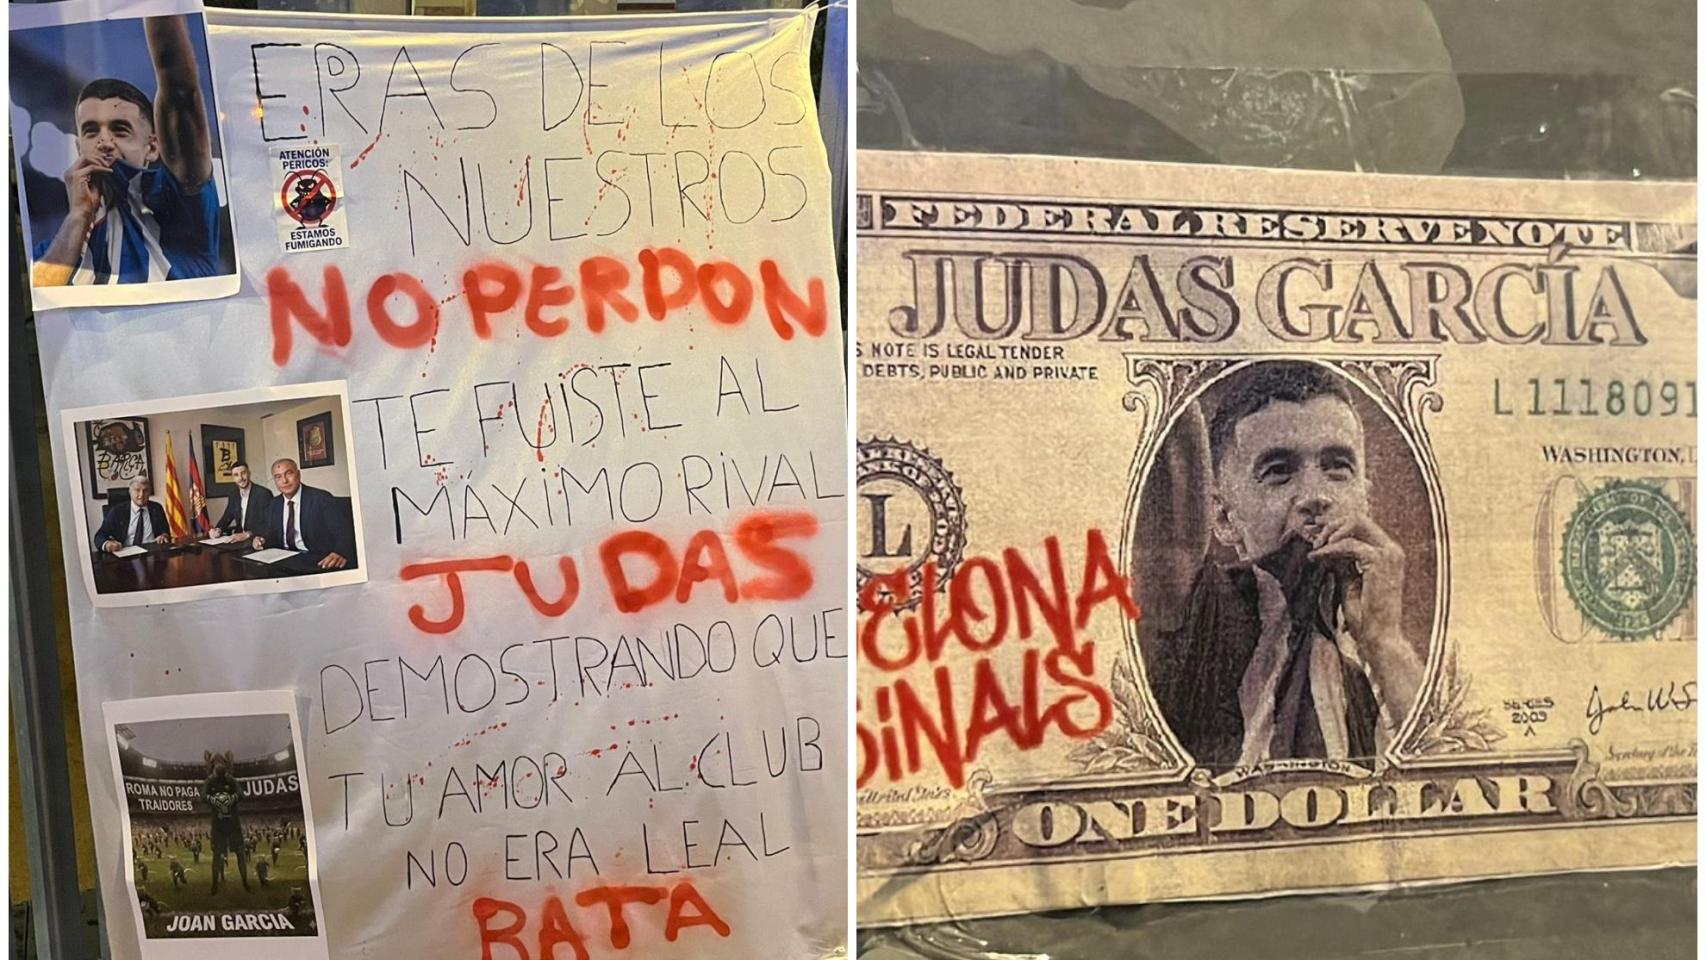 ERAS DE LOS
ATENCIÓN
PERICOS:
ESTAMOS
FUMIGANDO
NUESTROS
NO PERDON
TE FUISTE AL
MÁXIMO RIVAL
JUDAS
DEMOSTRANDO QUE
TU AMOR AL CLUB
NO ERA LEAL
RATA
BARÇA
ROMA NO PAGA
TRAIDORES
JUDAS
JOAN GARCIA
FEDERAL RESERVE NOTE
JUDAS GARCÍA
NOTE IS LEGAL TENDER
DEBTS, PUBLIC AND PRIVATE
L1118091
WASHINGTON,
L
ELONA
GINALS
SERIES
2003
A
WASHINGTON
ONE DOLLAR